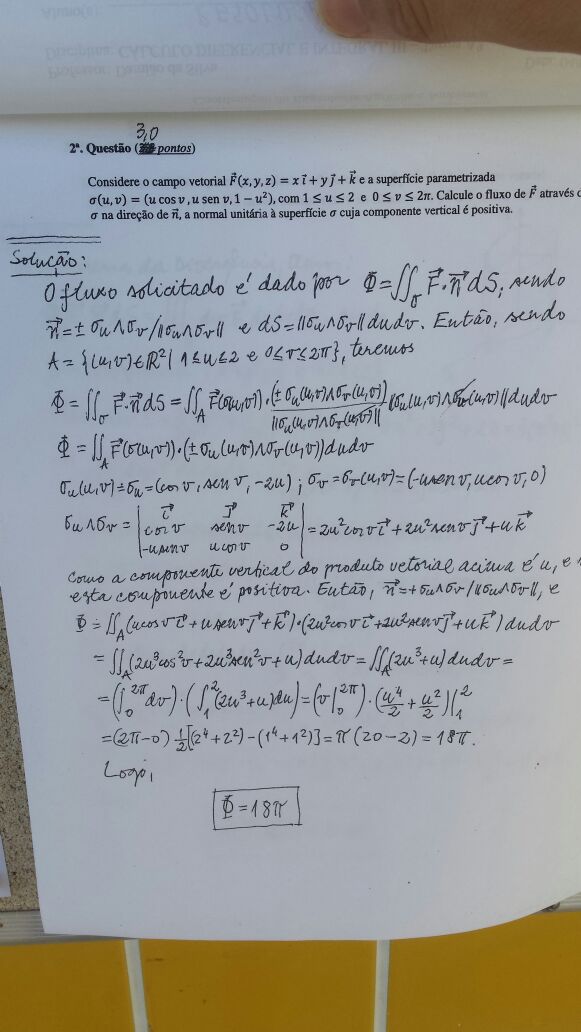 2ª. Questão (3,0 pontos)
Considere o campo vetorial F⃗(x, y, z) = x i⃗ + y j⃗ + k⃗ e a superfície parametrizada
σ(u, v) = (u cos v, u sen v, 1 − u²), com 1 ≤ u ≤ 2 e 0 ≤ v ≤ 2π. Calcule o fluxo de F⃗ através
σ na direção de n⃗, a normal unitária à superfície σ cuja componente vertical é positiva.
Solução:
O fluxo solicitado é dado por Φ = ∬_σ F⃗·n⃗ dS, sendo
n⃗ = ± σu∧σv/‖σu∧σv‖ e dS = ‖σu∧σv‖dudv. Então, sendo
A = {(u,v)∈ℝ² | 1≤u≤2 e 0≤v≤2π}, teremos
Φ = ∬_σ F⃗·n⃗ dS = ∬_A F⃗(σ(u,v))·(± σu(u,v)∧σv(u,v))/‖σu(u,v)∧σv(u,v)‖ ‖σu(u,v)∧σv(u,v)‖dudv
Φ = ∬_A F⃗(σ(u,v))·(±σu(u,v)∧σv(u,v))dudv
σu(u,v) = σu = (cos v, sen v, -2u) ; σv = σv(u,v) = (-u sen v, u cos v, 0)
σu∧σv = | i⃗ j⃗ k⃗ |
| cos v sen v -2u | = 2u²cos v i⃗ + 2u²sen v j⃗ + u k⃗
| -u sen v u cos v 0 |
Como a componente vertical do produto vetorial acima é u, e
esta componente é positiva. Então, n⃗ = +σu∧σv/‖σu∧σv‖, e
Φ = ∬_A (u cos v i⃗ + u sen v j⃗ + k⃗)·(2u²cos v i⃗ + 2u²sen v j⃗ + u k⃗) dudv
= ∬_A (2u³cos²v + 2u³sen²v + u) dudv = ∬_A (2u³ + u) dudv =
= (∫₀^2π dv)·(∫₁² (2u³+u)du) = (v|₀^2π)·(u⁴/2 + u²/2)|₁²
= (2π-0) 1/2[(2⁴+2²) - (1⁴+1²)] = π(20-2) = 18π.
Logo,
Φ = 18π